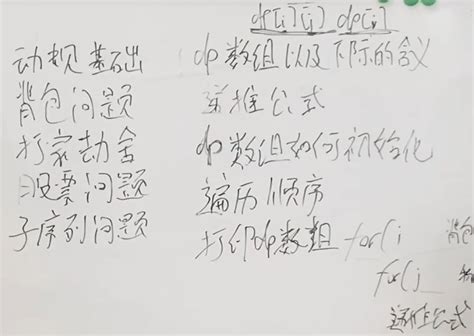 dp[i][j] dp[i]
动规基础
背包问题
打家劫舍
股票问题
子序列问题
dp数组以及下标的含义
递推公式
dp数组如何初始化
遍历顺序
打印dp数组
for(i 背包
for(j
递推公式